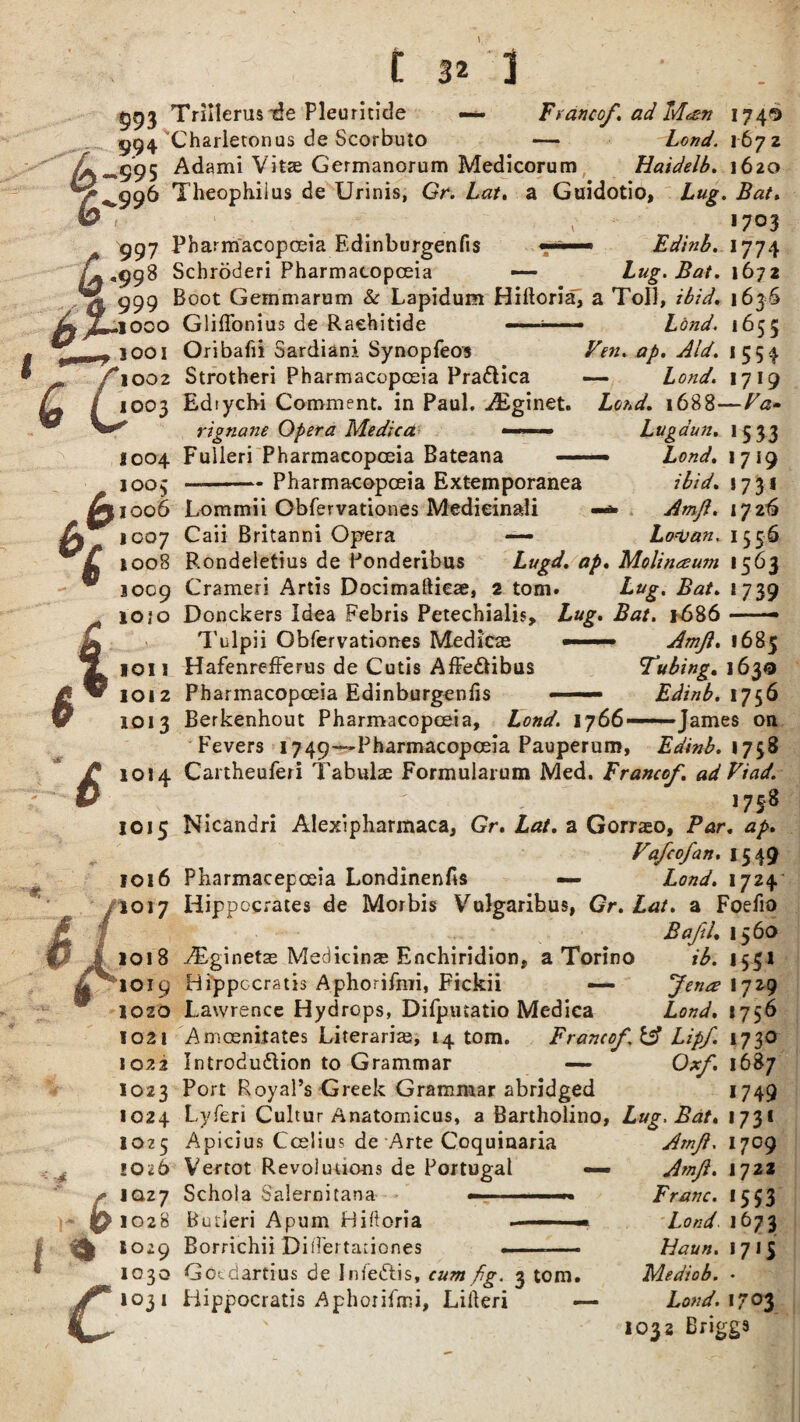 [ 32 ]
993 Trillerus de Pleuritide — Francof. ad Mæn 1740
994 Charletonus de Scorbuto — Lond. 1672
995 Adami Vitæ Germanorum Medicorum Haidelb. 1620
996 Theophilus de Urinis, Gr. Lat. a Guidotio, Lug. Bat.
1703
997 Pharmacopœia Edinburgenſis — Edinb. 1774
998 Schröderi Pharmacopœia — Lug. Bat. 1672
999 Boot Gemmarum & Lapidum Hiſtoria, a Toll, ibid. 1636
1000 Gliſſonius de Rachitide — Lond. 1655
1001 Oribaſii Sardiani Synopſeos Ven. ap. Ald. 1554
1002 Strotheri Pharmacopœia Practica — Lond. 1719
1003 Edtychi Comment. in Paul. Æginet. Lond. 1688—Va-
rignane Opera Medica — Lugdun. 1533
1004 Fulleri Pharmacopœia Bateana — Lond. 1719
1005 — Pharmacopœia Extemporanea ibid. 1731
1006 Lommii Obſervationes Medicinali — Amſt. 1726
1007 Caii Britanni Opera — Lovan. 1556
1008 Rondeletius de Ponderibus Lugd. ap. Molinæum 1563
1009 Crameri Artis Docimaſticæ, 2 tom. Lug. Bat. 1739
1010 Donckers Idea Febris Petechialis, Lug. Bat. 1686 —
Tulpii Obſervationes Medicæ — Amſt. 1685
1011 Hafenrefferus de Cutis Affectibus Tubing. 1630
1012 Pharmacopœia Edinburgenſis — Edinb. 1756
1013 Berkenhout Pharmacopœia, Lond. 1766—James on
Fevers 1749—Pharmacopœia Pauperum, Edinb. 1758
1014 Cartheuſeri Tabulæ Formularum Med. Francof. ad Viad.
1758
1015 Nicandri Alexipharmaca, Gr. Lat. a Gorræo, Par. ap.
Vaſcoſan. 1549
1016 Pharmacepœia Londinenſis — Lond. 1724
1017 Hippocrates de Morbis Vulgaribus, Gr. Lat. a Foeſio
Baſil. 1560
1018 Æginetæ Medicinæ Enchiridion, a Torino ib. 1551
1019 Hippocratis Aphoriſmi, Fickii — Jenæ 1729
1020 Lawrence Hydrops, Diſputatio Medica Lond. 1756
1021 Amœnitates Literariæ, 14 tom. Francof. & Lipſ. 1730
1022 Introduction to Grammar — Oxf. 1687
1023 Port Royal's Greek Grammar abridged 1749
1024 Lyſeri Cultur Anatomicus, a Bartholino, Lug. Bat. 1731
1025 Apicius Cœlius de Arte Coquinaria Amſt. 1709
1026 Vertot Revolutions de Portugal — Amſt. 1722
1027 Schola Salernitana — Franc. 1553
1028 Butleri Apum Hiſtoria — Lond. 1673
1029 Borrichii Diſſertationes — Haun. 1715
1030 Goedartius de Inſectis, cum fig. 3 tom. Mediob.
1031 Hippocratis Aphoriſmi, Liſteri — Lond. 1703
1032 Briggs